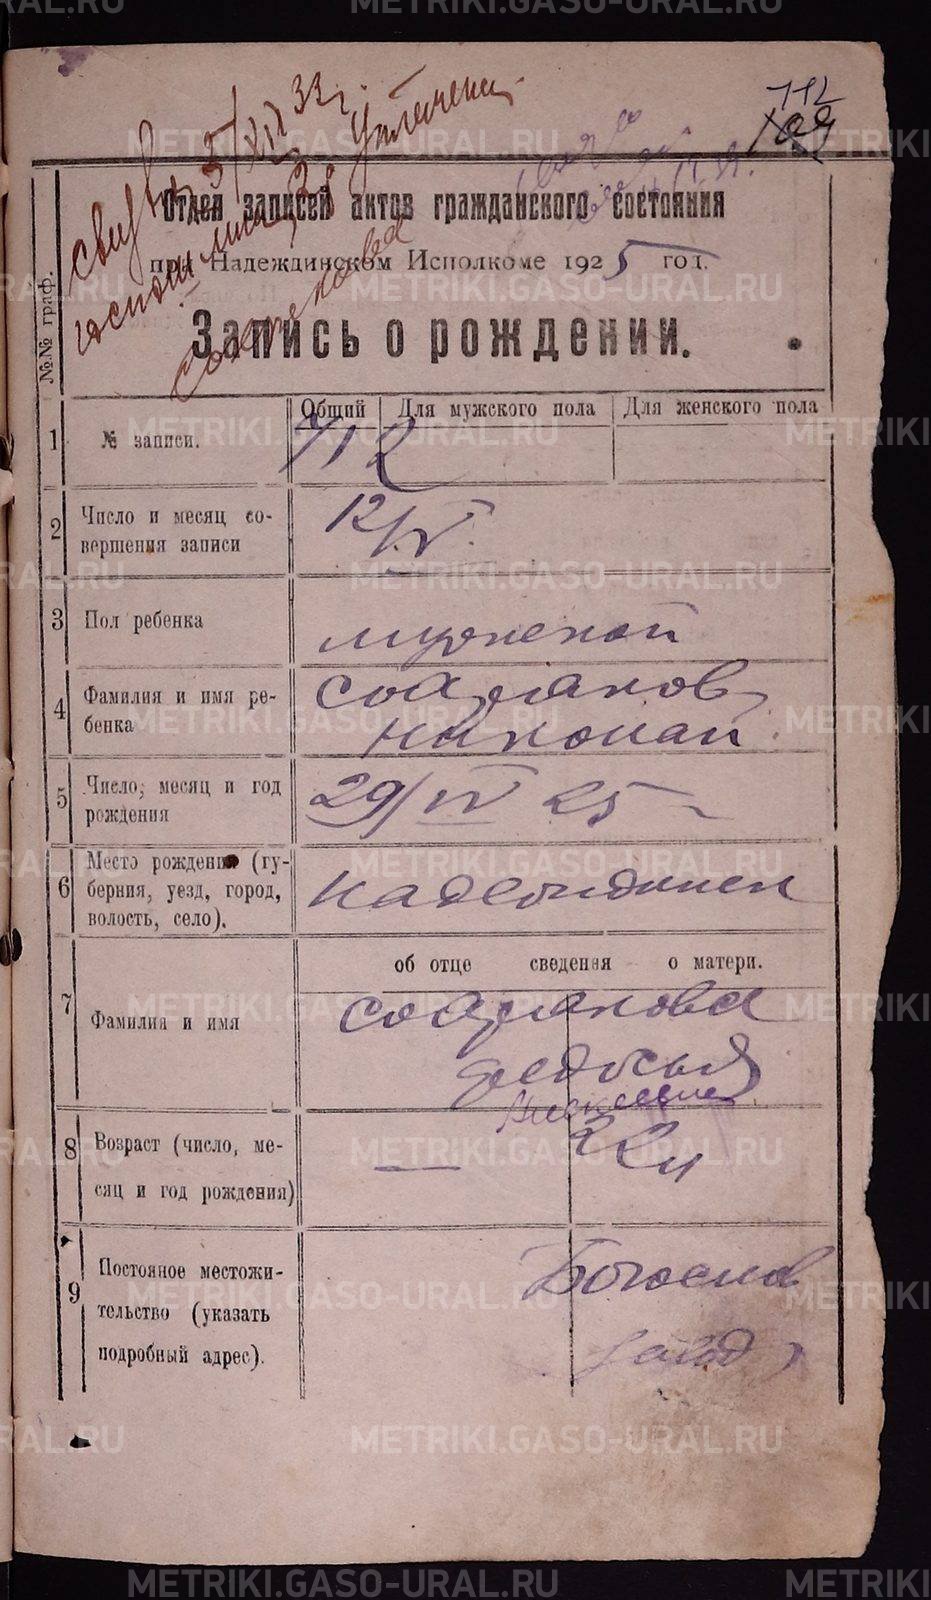 112
109
свид. выд. 5/XII 33 г.
Отдел записей актов гражданского состояния
при Надеждинском Исполкоме 1925 год.
Запись о рождении.
№№ граф.
Общий Для мужского пола Для женского пола
1 № записи. 112
2 Число и месяц со-
вершения записи 12/V.
3 Пол ребенка мужской
4 Фамилия и имя ре-
бенка
Николай
5 Число, месяц и год
рождения 29/IV 25
6 Место рождения (гу-
берния, уезд, город,
волость, село). Надеждинск
об отце сведения о матери.
7 Фамилия и имя
Федосья
8 Возраст (число, ме-
сяц и год рождения) — 22
9 Постояное местожи-
тельство (указать
подробный адрес).
Богослов
завод
METRIKI.GASO-URAL.RU